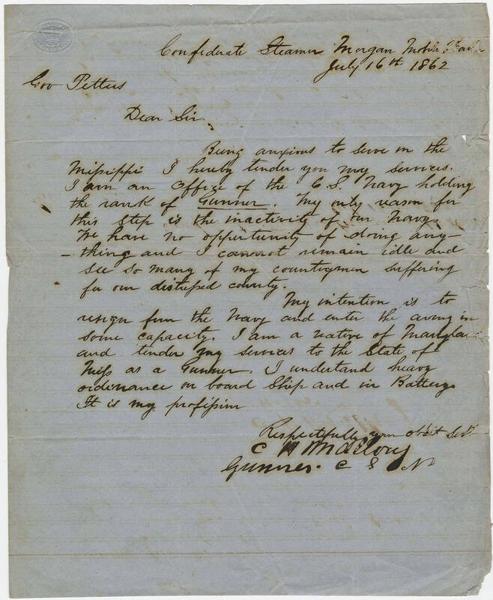 Confederate Steamer Morgan Mobile
July 16th 1862
Gov Pettus
Dear Sir
Being anxious to serve in the
Missippi I hereby tender you my services.
I am an Officer of the C.S. Navy holding
the rank of Gunner. My only reason for
this step is the inactivity of our Navy.
We have no oppertunity of doing any-
-thing and I cannot remain idle and
see so many of my countrymen suffering
for our distressed country.
My intention is to
resign from the Navy and enter the army in
some capacity. I am a native of
and tender my services to the State of
Miss as a Gunner. I understand heavy
ordenance on board Ship and in Battery.
It is my profission
Respectfully your Obt Svt
C H
Gunner. C S N